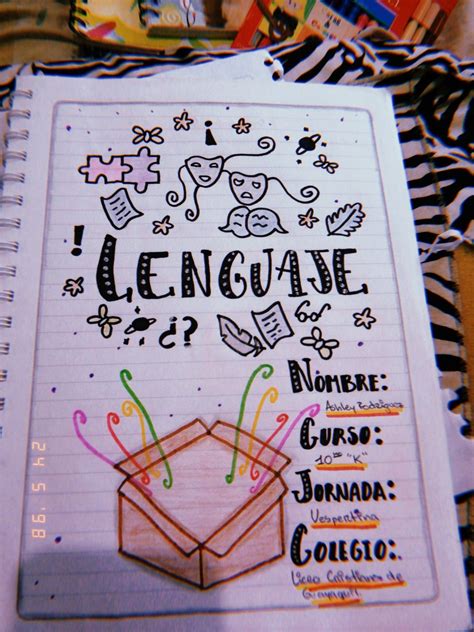 LENGUAJE
¿?
NOMBRE:
Ashley Rodríguez
CURSO:
10mo "K"
JORNADA:
Vespertina
COLEGIO:
Liceo Cristiano de
Guayaquil
24 5 '98